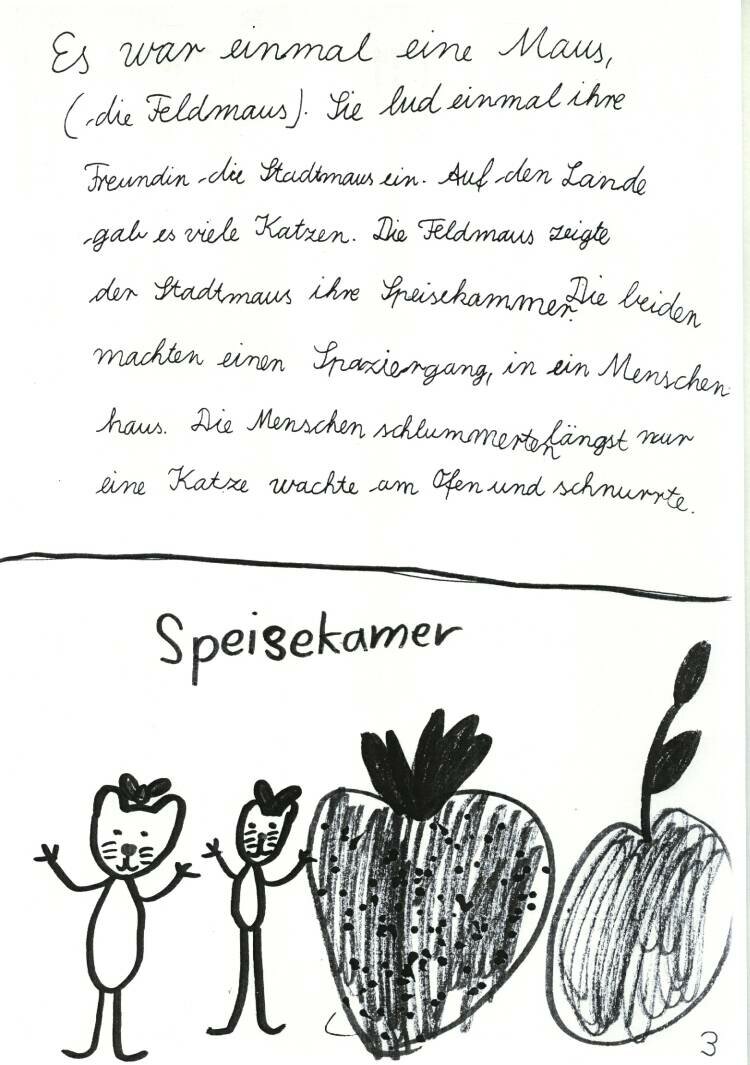 Es war einmal eine Maus,
(die Feldmaus). Sie lud einmal ihre
Freundin die Stadtmaus ein. Auf den Lande
gab es viele Katzen. Die Feldmaus zeigte
der Stadtmaus ihre Speisekammer. Die beiden
machten einen Spaziergang, in ein Menschen
haus. Die Menschen schlummerten längst nur
eine Katze wachte am Ofen und schnurrte.
Speisekamer
3